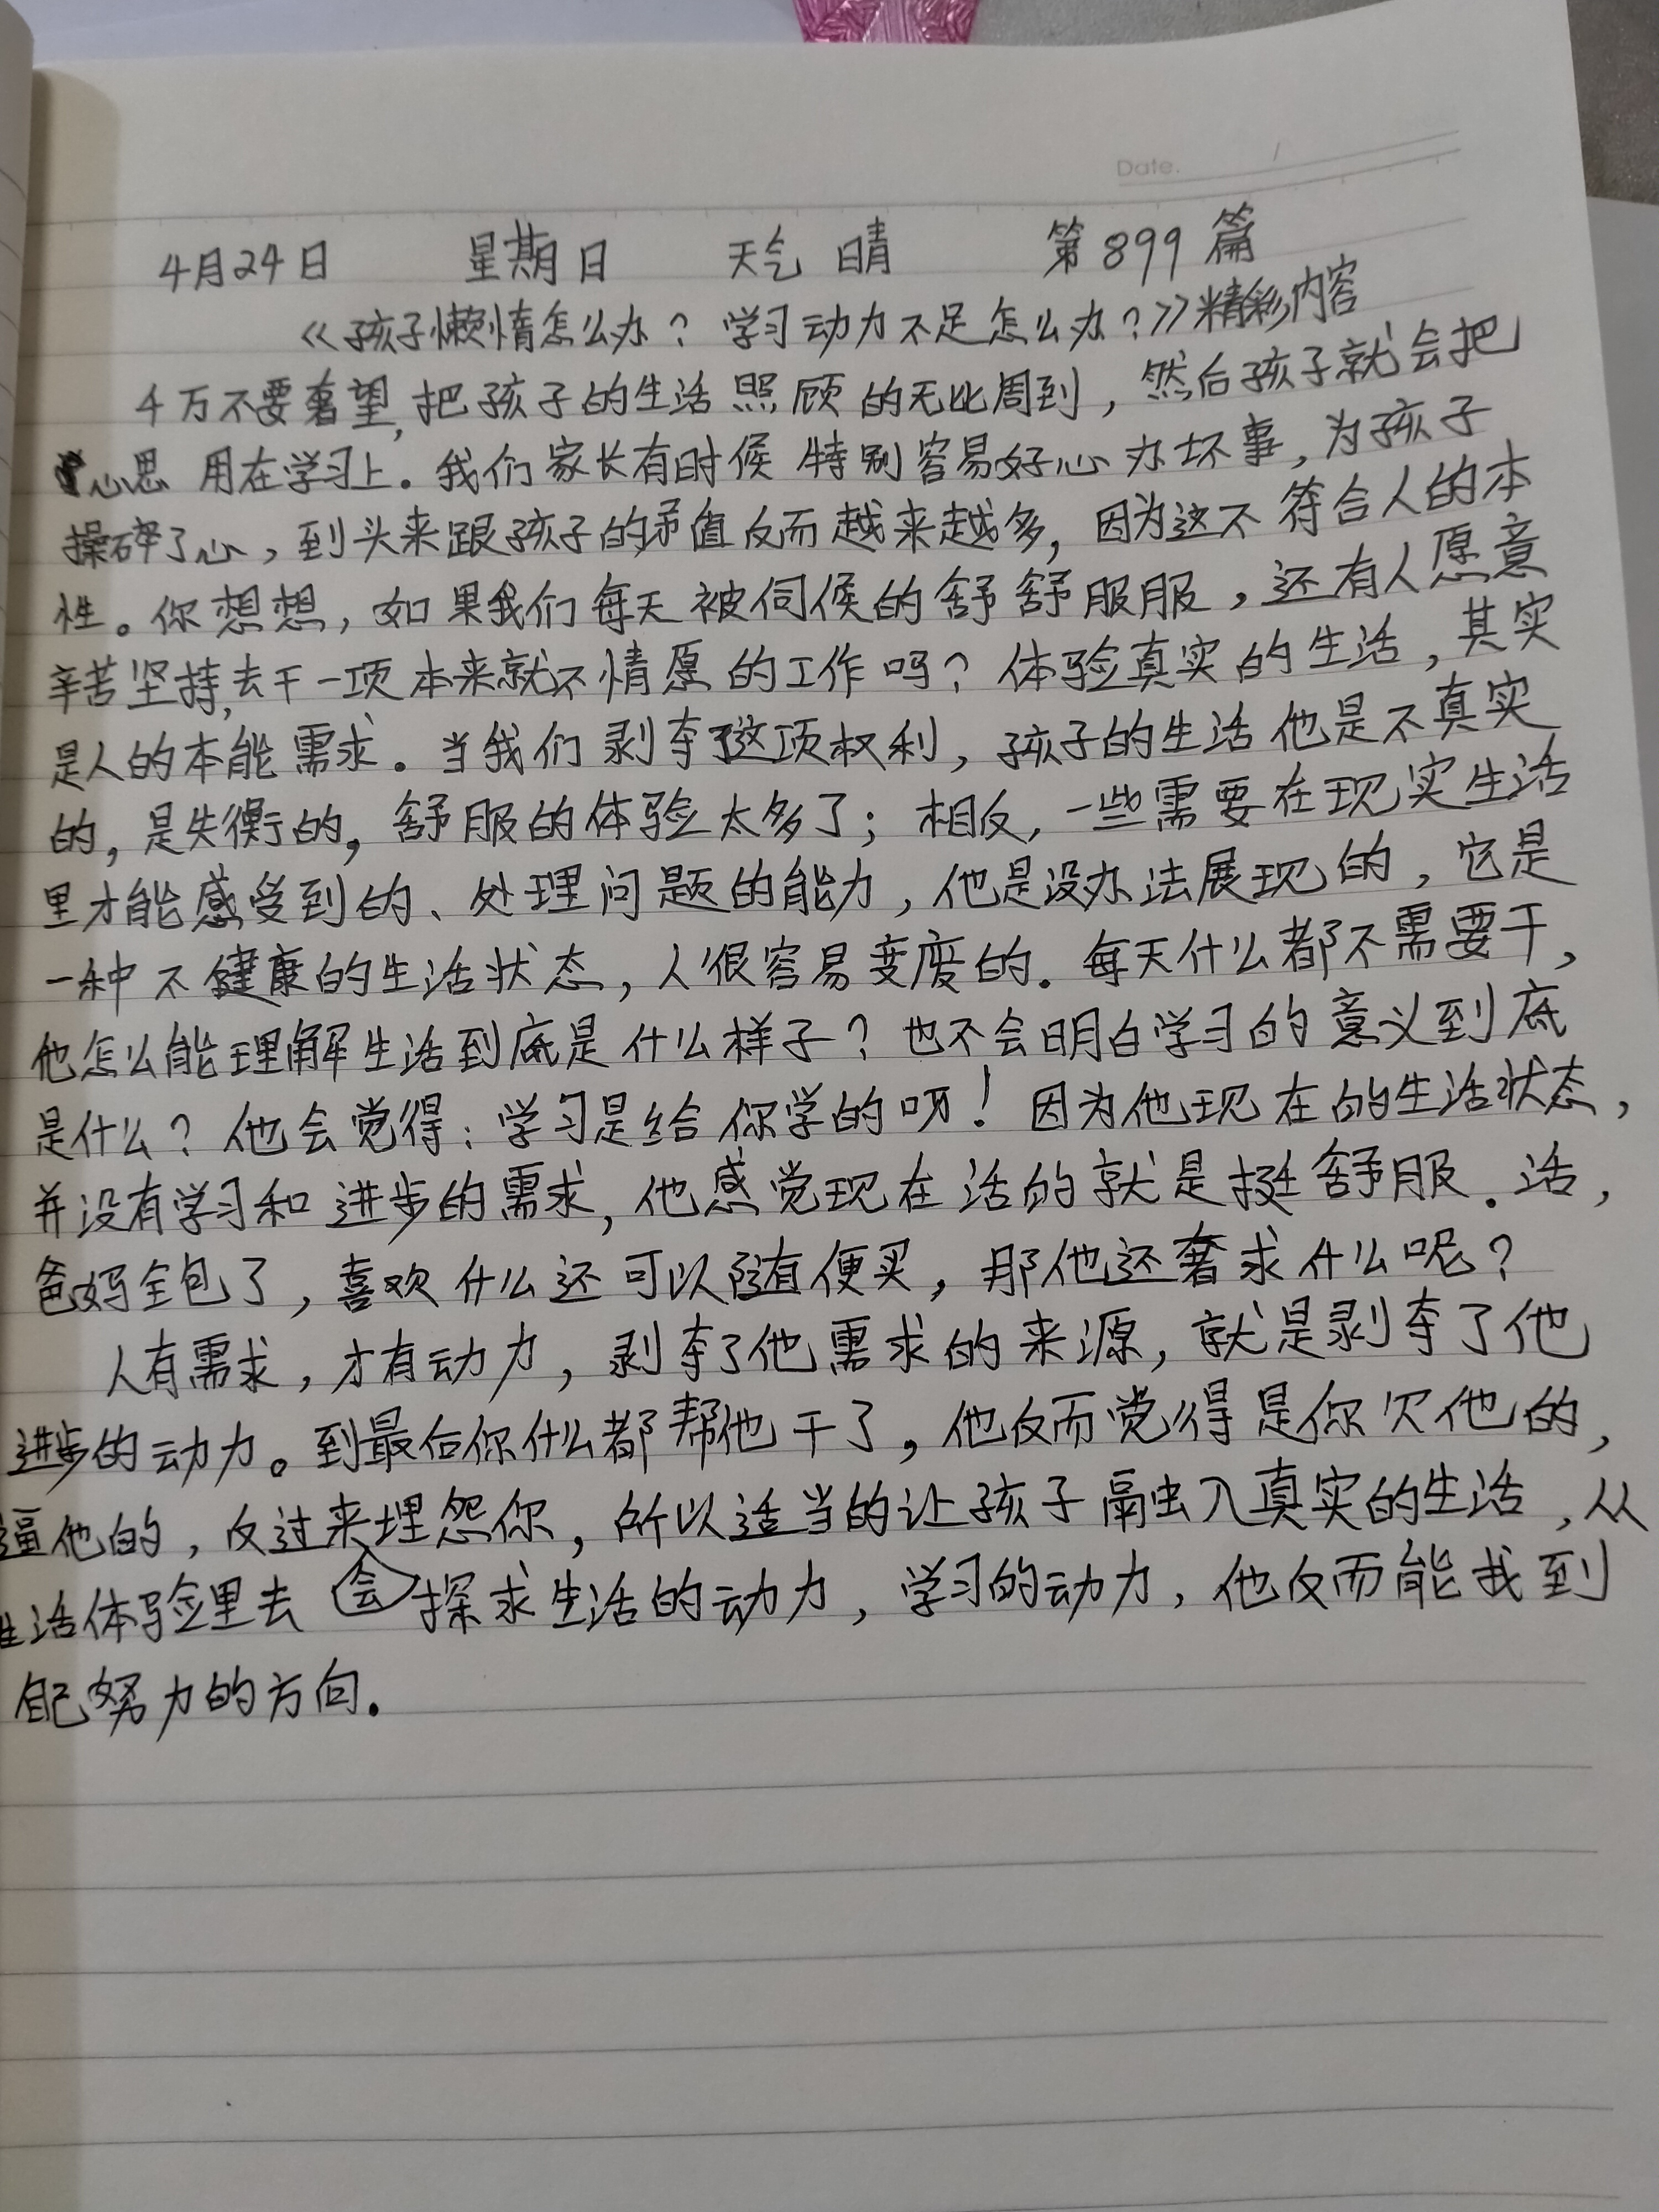 Date.
4月24日 星期日 天气 晴 第899篇
《孩子懒惰怎么办？学习动力不足怎么办？》精彩内容
千万不要奢望，把孩子的生活照顾的无比周到，然后孩子就会把
心思用在学习上。我们家长有时候特别容易好心办坏事，为孩子
操碎了心，到头来跟孩子的矛值反而越来越多，因为这不符合人的本
性。你想想，如果我们每天被伺候的舒舒服服，还有人愿意
辛苦坚持，去干一项本来就不情愿的工作吗？体验真实的生活，其实
是人的本能需求。当我们剥夺了这项权利，孩子的生活他是不真实
的，是失衡的，舒服的体验太多了；相反，一些需要在现实生活
里才能感受到的、处理问题的能力，他是没办法展现的，它是
一种不健康的生活状态，人很容易变废的。每天什么都不需要干，
他怎么能理解生活到底是什么样子？也不会明白学习的意义到底
是什么？他会觉得：学习是给你学的呀！因为他现在的生活状态，
并没有学习和进步的需求，他感觉现在活的就是挺舒服。活，
爸妈全包了，喜欢什么还可以随便买，那他还奢求什么呢？
人有需求，才有动力，剥夺了他需求的来源，就是剥夺了他
进步的动力。到最后你什么都帮他干了，他反而觉得是你欠他的，
逼他的，反过来埋怨你，所以适当的让孩子融入真实的生活，从
生活体验里去会探求生活的动力，学习的动力，他反而能找到
自己努力的方向。